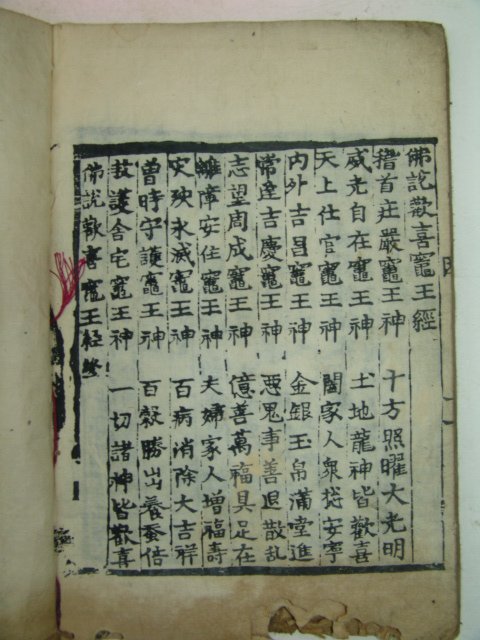 佛說歡喜竈王經
稽首莊嚴竈王神 十方照曜大光明
威光自在竈王神 土地龍神皆歡喜
天上仕官竈王神 闔家人衆㧣安寧
內外吉昌竈王神 金銀玉帛滿堂進
常逢吉慶竈王神 惡鬼事善退散乱
志望周成竈王神 億善萬福具足在
擁章安住竈王神 夫婦家人增福壽
灾殃永滅竈王神 百病消除大吉祥
曽時守護竈王神 百穀勝出養蚕倍
救護舍宅竈王神 一切諸神皆歡喜
佛說歡喜竈王經終